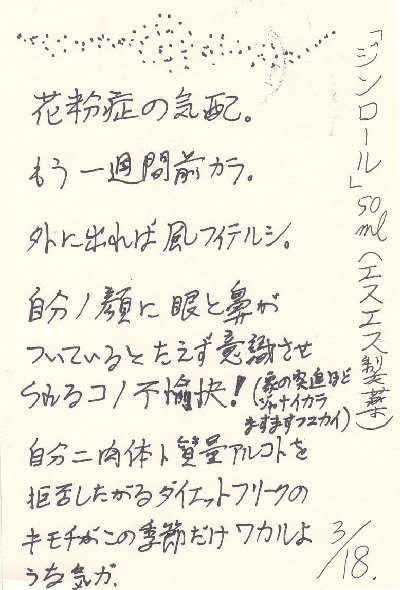 花粉症の気配。
もう一週間前カラ。
外に出れば風フイテルシ。
自分ノ顔に眼と鼻が
ついているとたえず意識させ
られるコノ不愉快!
(象の突進ほど
ジャナイカラ
ますますフユカイ)
自分ニ肉体ト質量アルコトを
拒否したがるダイエットフリークの
キモチがこの季節だけワカルよ
うな気が.
3/18.
「ジンロール」50ml(エスエス製薬)